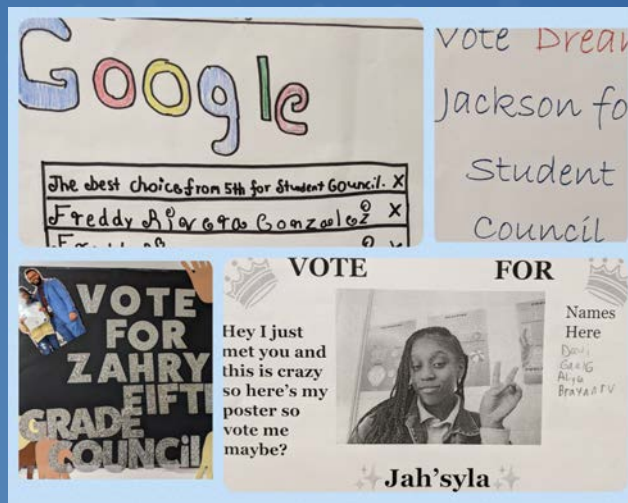 Google
The best choice from 5th for Student Council. X
Freddy Rivera Gonzalez X
Vote Dream
Jackson fo
Student
Council
VOTE
FOR
ZAHRY
FIFTH
GRADE
COUNCIL
VOTE FOR
Hey I just
met you and
this is crazy
so here's my
poster so
vote me
maybe?
Names
Here
Devi
Aliya
Jah'syla